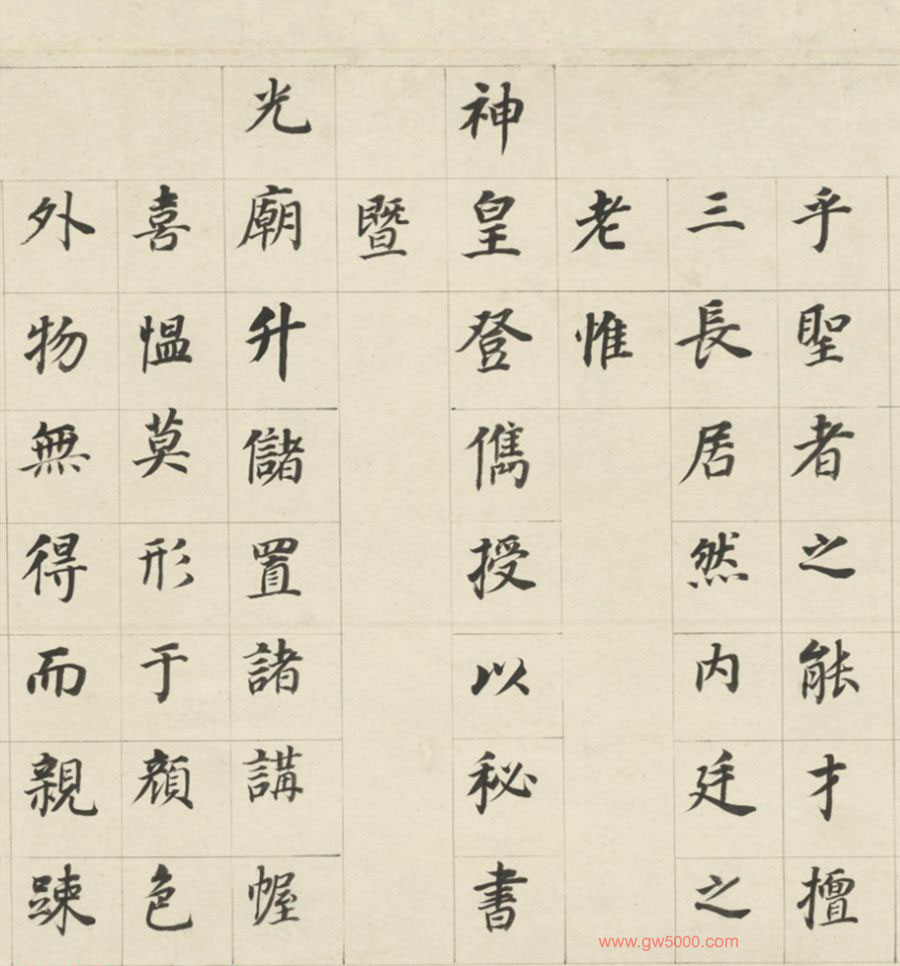 乎聖者之能才擅
三長居然内廷之
老惟
神皇登儁授以秘書
暨
光廟升儲置諸講幄
喜愠莫形于顔色
外物無得而親踈
www.gw5000.com